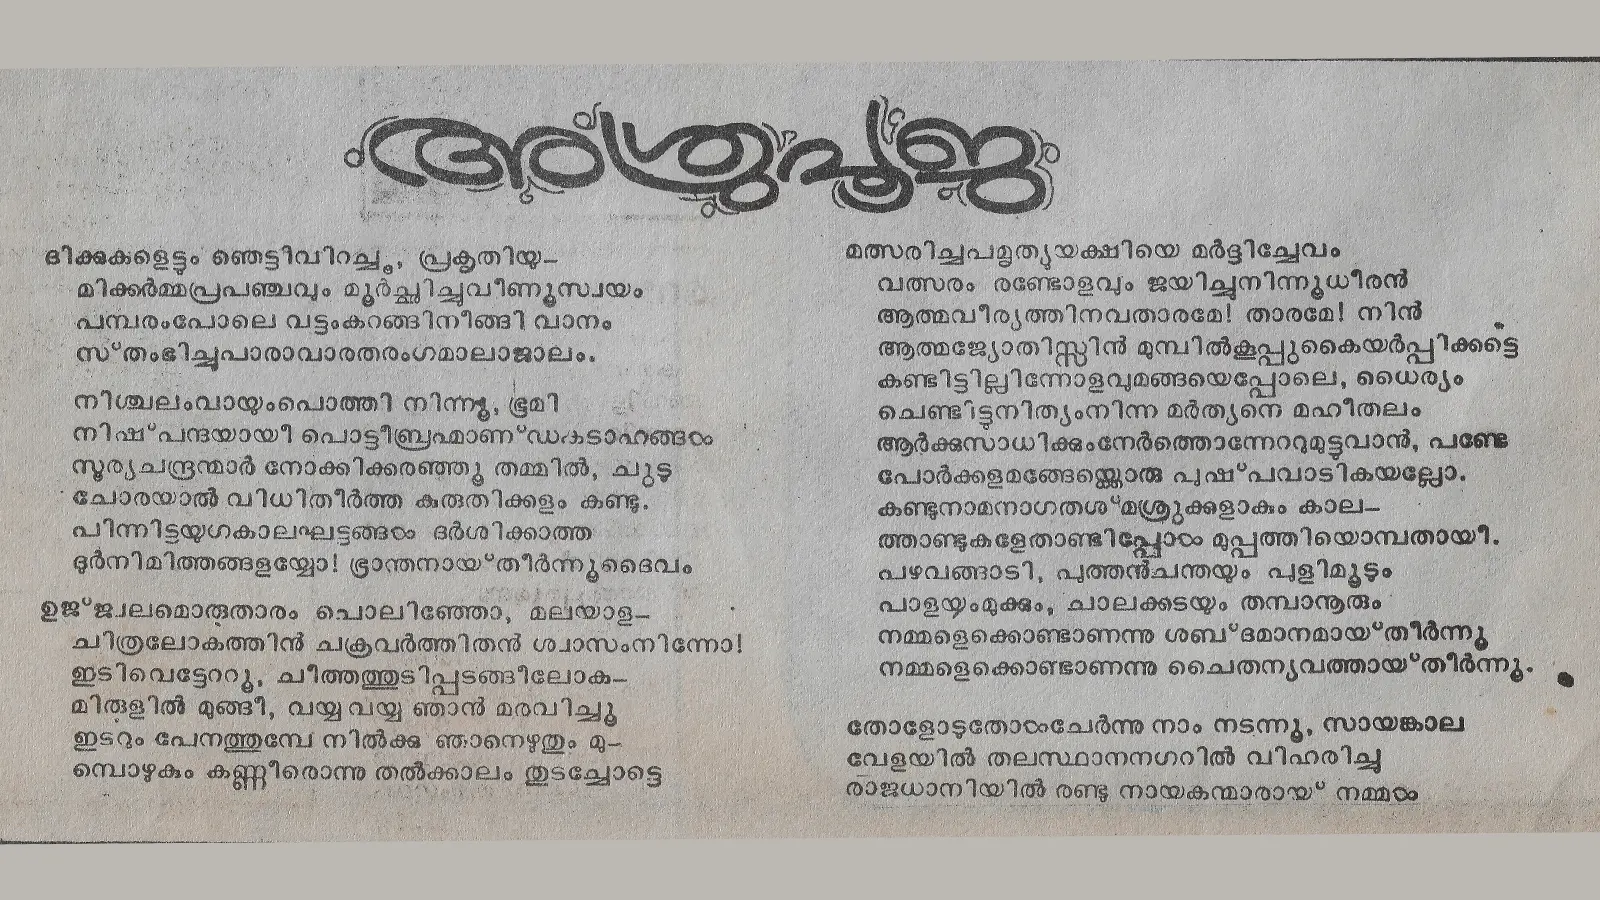 അശ്രുപൂജ
ദിക്കുകളെട്ടും ഞെട്ടിവിറച്ചൂ, പ്രകൃതിയു-
മിക്കർമ്മപ്രപഞ്ചവും മൂർച്ഛിച്ചുവീണൂസ്വയം
പമ്പരംപോലെ വട്ടംകറങ്ങിനീങ്ങി വാനം
സ്തംഭിച്ചുപാരാവാരതരംഗമാലാജാലം.
നിശ്ചലംവായുംപൊത്തി നിന്നൂ, ഭൂമി
നിഷ്പന്ദയായീ പൊട്ടീബ്രഹ്മാണ്ഡകടാഹങ്ങൾ
സൂര്യചന്ദ്രന്മാർ നോക്കിക്കരഞ്ഞൂ തമ്മിൽ, ചുടു
ചോരയാൽ വിധിതീർത്ത കുരുതിക്കളം കണ്ടു.
പിന്നിട്ടയുഗകാലഘട്ടങ്ങൾ ദർശിക്കാത്ത
ദുർന്നിമിത്തങ്ങളയ്യോ! ഭ്രാന്തനായ്തീർന്നൂദൈവം
ഉജ്ജ്വലമൊരുതാരം പൊലിഞ്ഞോ, മലയാള-
ചിത്രലോകത്തിൻ ചക്രവർത്തിതൻ ശ്വാസംനിന്നോ!
ഇടിവെട്ടേററൂ, ചീത്തത്തുടിപ്പടങ്ങീലോക-
മിരുളിൽ മുങ്ങീ, വയ്യ വയ്യ ഞാൻ മരവിച്ചൂ
ഇടറും പേനത്തുമ്പേ നിൽക്കു ഞാനെഴുതും മു-
മ്പൊഴുകും കണ്ണീരൊന്നു തൽക്കാലം തുടച്ചോട്ടെ
മത്സരിച്ചപമൃത്യുയക്ഷിയെ മർദ്ദിച്ചേവം
വത്സരം രണ്ടോളവും ജയിച്ചുനിന്നൂധീരൻ
ആത്മവീര്യത്തിനവതാരമേ! താരമേ! നിൻ
ആത്മജ്യോതിസ്സിൻ മുമ്പിൽകൂപ്പുകൈയർപ്പിക്കട്ടെ
കണ്ടിട്ടില്ലിന്നോളവുമങ്ങയെപ്പോലെ, ധൈര്യം
ചെണ്ടിട്ടുനിത്യംനിന്ന മർത്യനെ മഹീതലം
ആർക്കുസാധിക്കുംനേർത്തൊന്നേററുമുട്ടുവാൻ, പണ്ടേ
പോർക്കളമങ്ങേയ്ക്കൊരു പുഷ്പവാടികയല്ലോ.
കണ്ടുനാമനാഗതശ്മശ്രുക്കളാകും കാല-
ത്താണ്ടുകളേതാണ്ടിപ്പോൾ മുപ്പത്തിയൊമ്പതായീ.
പഴവങ്ങാടി, പുത്തൻചന്തയും പുളിമൂടും
പാളയംമുക്കും, ചാലക്കടയും തമ്പാനൂരും
നമ്മളെക്കൊണ്ടാണന്നു ശബ്ദമാനമായ്തീർന്നൂ
നമ്മളെക്കൊണ്ടാണന്നു ചൈതന്യവത്തായ്തീർന്നൂ.
തോളോടുതോൾചേർന്നു നാം നടന്നൂ, സായങ്കാല
വേളയിൽ തലസ്ഥാനനഗറിൽ വിഹരിച്ചു
രാജധാനിയിൽ രണ്ടു നായകന്മാരായ് നമ്മൾ